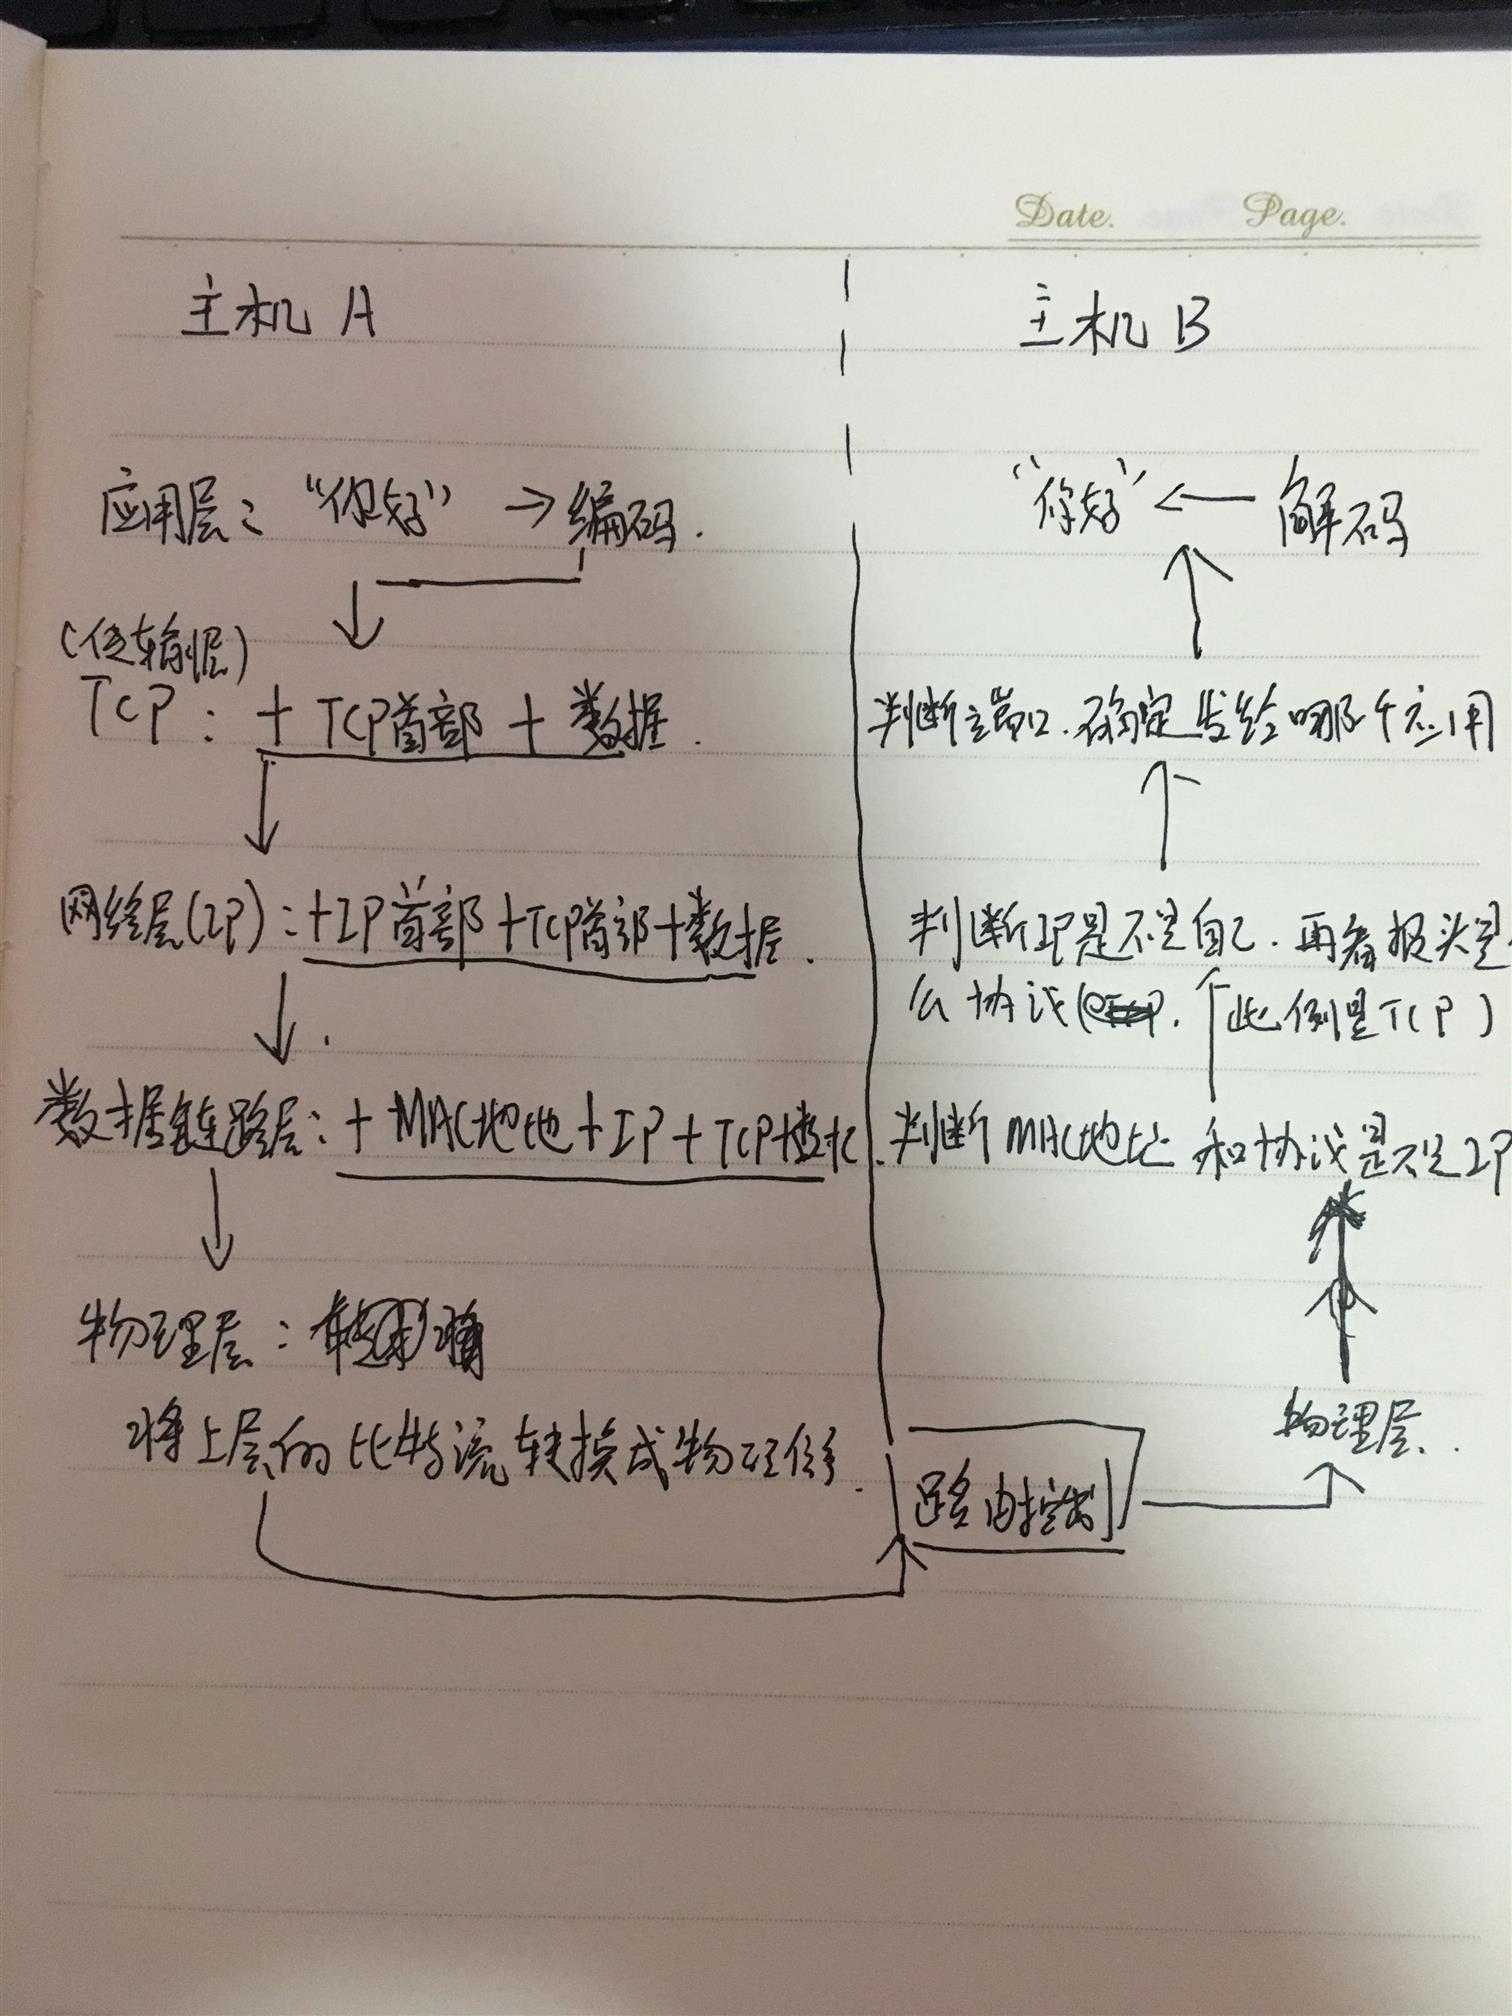 Date. Page.
主机 A
主机 B
应用层: "你好" → 编码.
"你好" ← 解码
(传输层)
TCP: + TCP首部 + 数据.
判断端口.确定发给哪个应用
网络层(IP): +IP首部+TCP首部+数据.
判断IP是不是自己.再看报头是
么协议( 此例是TCP)
数据链路层: + MAC地址+IP+TCP+数据.
判断MAC地址 和协议是不是IP
物理层:
将上层的比特流转换成物理信号.
物理层.
路由控制